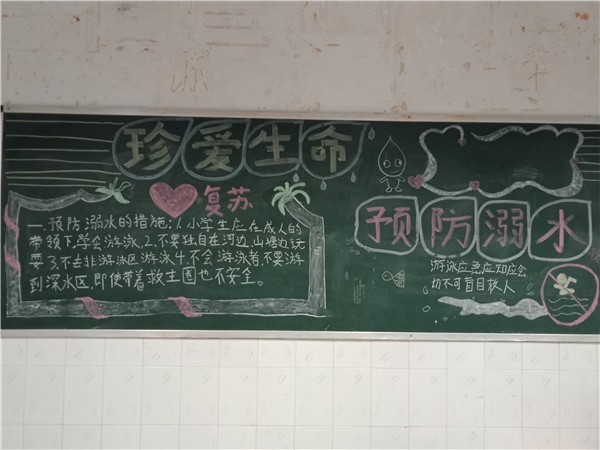 珍爱生命
复苏
一.预防溺水的措施:1.小学生应在成人的
带领下,学会游泳.2.不要独自在河边.山塘边玩
耍3.不去非游泳区游泳.4.不会游泳者,不要游
到深水区,即使带着救生圈也不安全。
预防溺水
游泳应急应知应会
切不可盲目救人